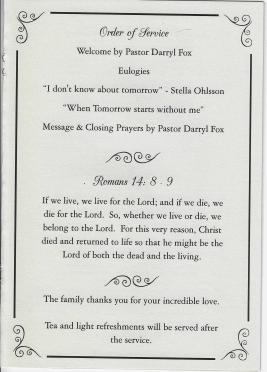 Order of Service
Welcome by Pastor Darryl Fox
Eulogies
"I don't know about tomorrow" - Stella Ohlsson
"When Tomorrow starts without me"
Message & Closing Prayers by Pastor Darryl Fox
Romans 14: 8 - 9
If we live, we live for the Lord; and if we die, we
die for the Lord. So, whether we live or die, we
belong to the Lord. For this very reason, Christ
died and returned to life so that he might be the
Lord of both the dead and the living.
The family thanks you for your incredible love.
Tea and light refreshments will be served after
the service.